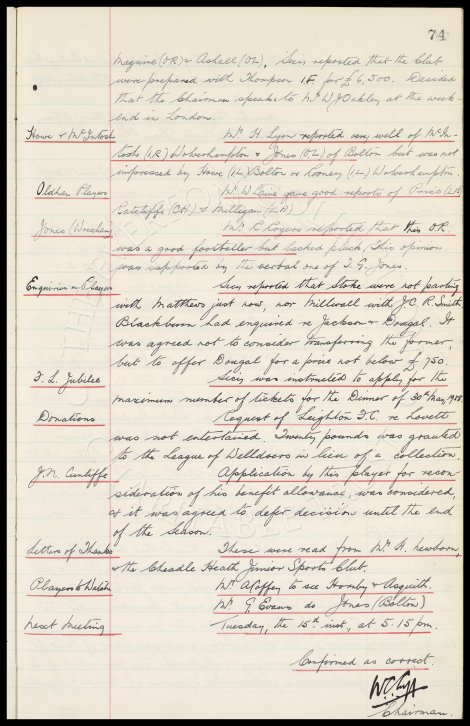 74
Maguire (OR) & Ashall (OL), Secy reported that the Club
were prepared with Thompson IF for £6,500. Decided
that the Chairman speaks to Mr W J Oakley, at the week-
end in London.
Howe & McIntosh Mr H. Lyon reported very well of McIn-
tosh (I.R) Wolverhampton & Jones (O.L) of Bolton but was not
impressed by Howe (I.L) Bolton or Rooney (I.L) Wolverhampton.
Oldham Players Mr W Laine gave good reports of Price (I.R)
Ratcliffe (C.H) & Milligan (L.H)
Jones (Wrexham) Mr E Rogers reported that this O.R.
was a good footballer but lacked pluck, This opinion
was supported by the verbal one of T. G. Jones.
Enquiries re Players Secy reported that Stoke were not parting
with Matthews just now, nor Millwall with J.C. R. Smith
Blackburn had enquired re Jackson & Dougal. It
was agreed not to consider transferring the former,
but to offer Dougal for a price not below £750.
F. L. Jubilee Secy was instructed to apply for the
maximum number of tickets for the Dinner of 30th May, 1938
Donations Request of Leighton F.C. re Lovett
was not entertained. Twenty pounds was granted
to the League of Welldoers in lieu of a collection.
J. N. Cunliffe Application by this player for recon-
sideration of his benefit allowance, was considered,
& it was agreed to defer decision until the end
of the Season.
Letters of Thanks These were read from Mr H. Newborn,
& the Cheadle Heath Junior Sports Club.
Players to Watch Mr A Coffey to see Hornby & Asquith.
Mr G. Evans do Jones (Bolton)
Next Meeting Tuesday, the 15th inst, at 5.15 pm.
Confirmed as correct.
Chairman.